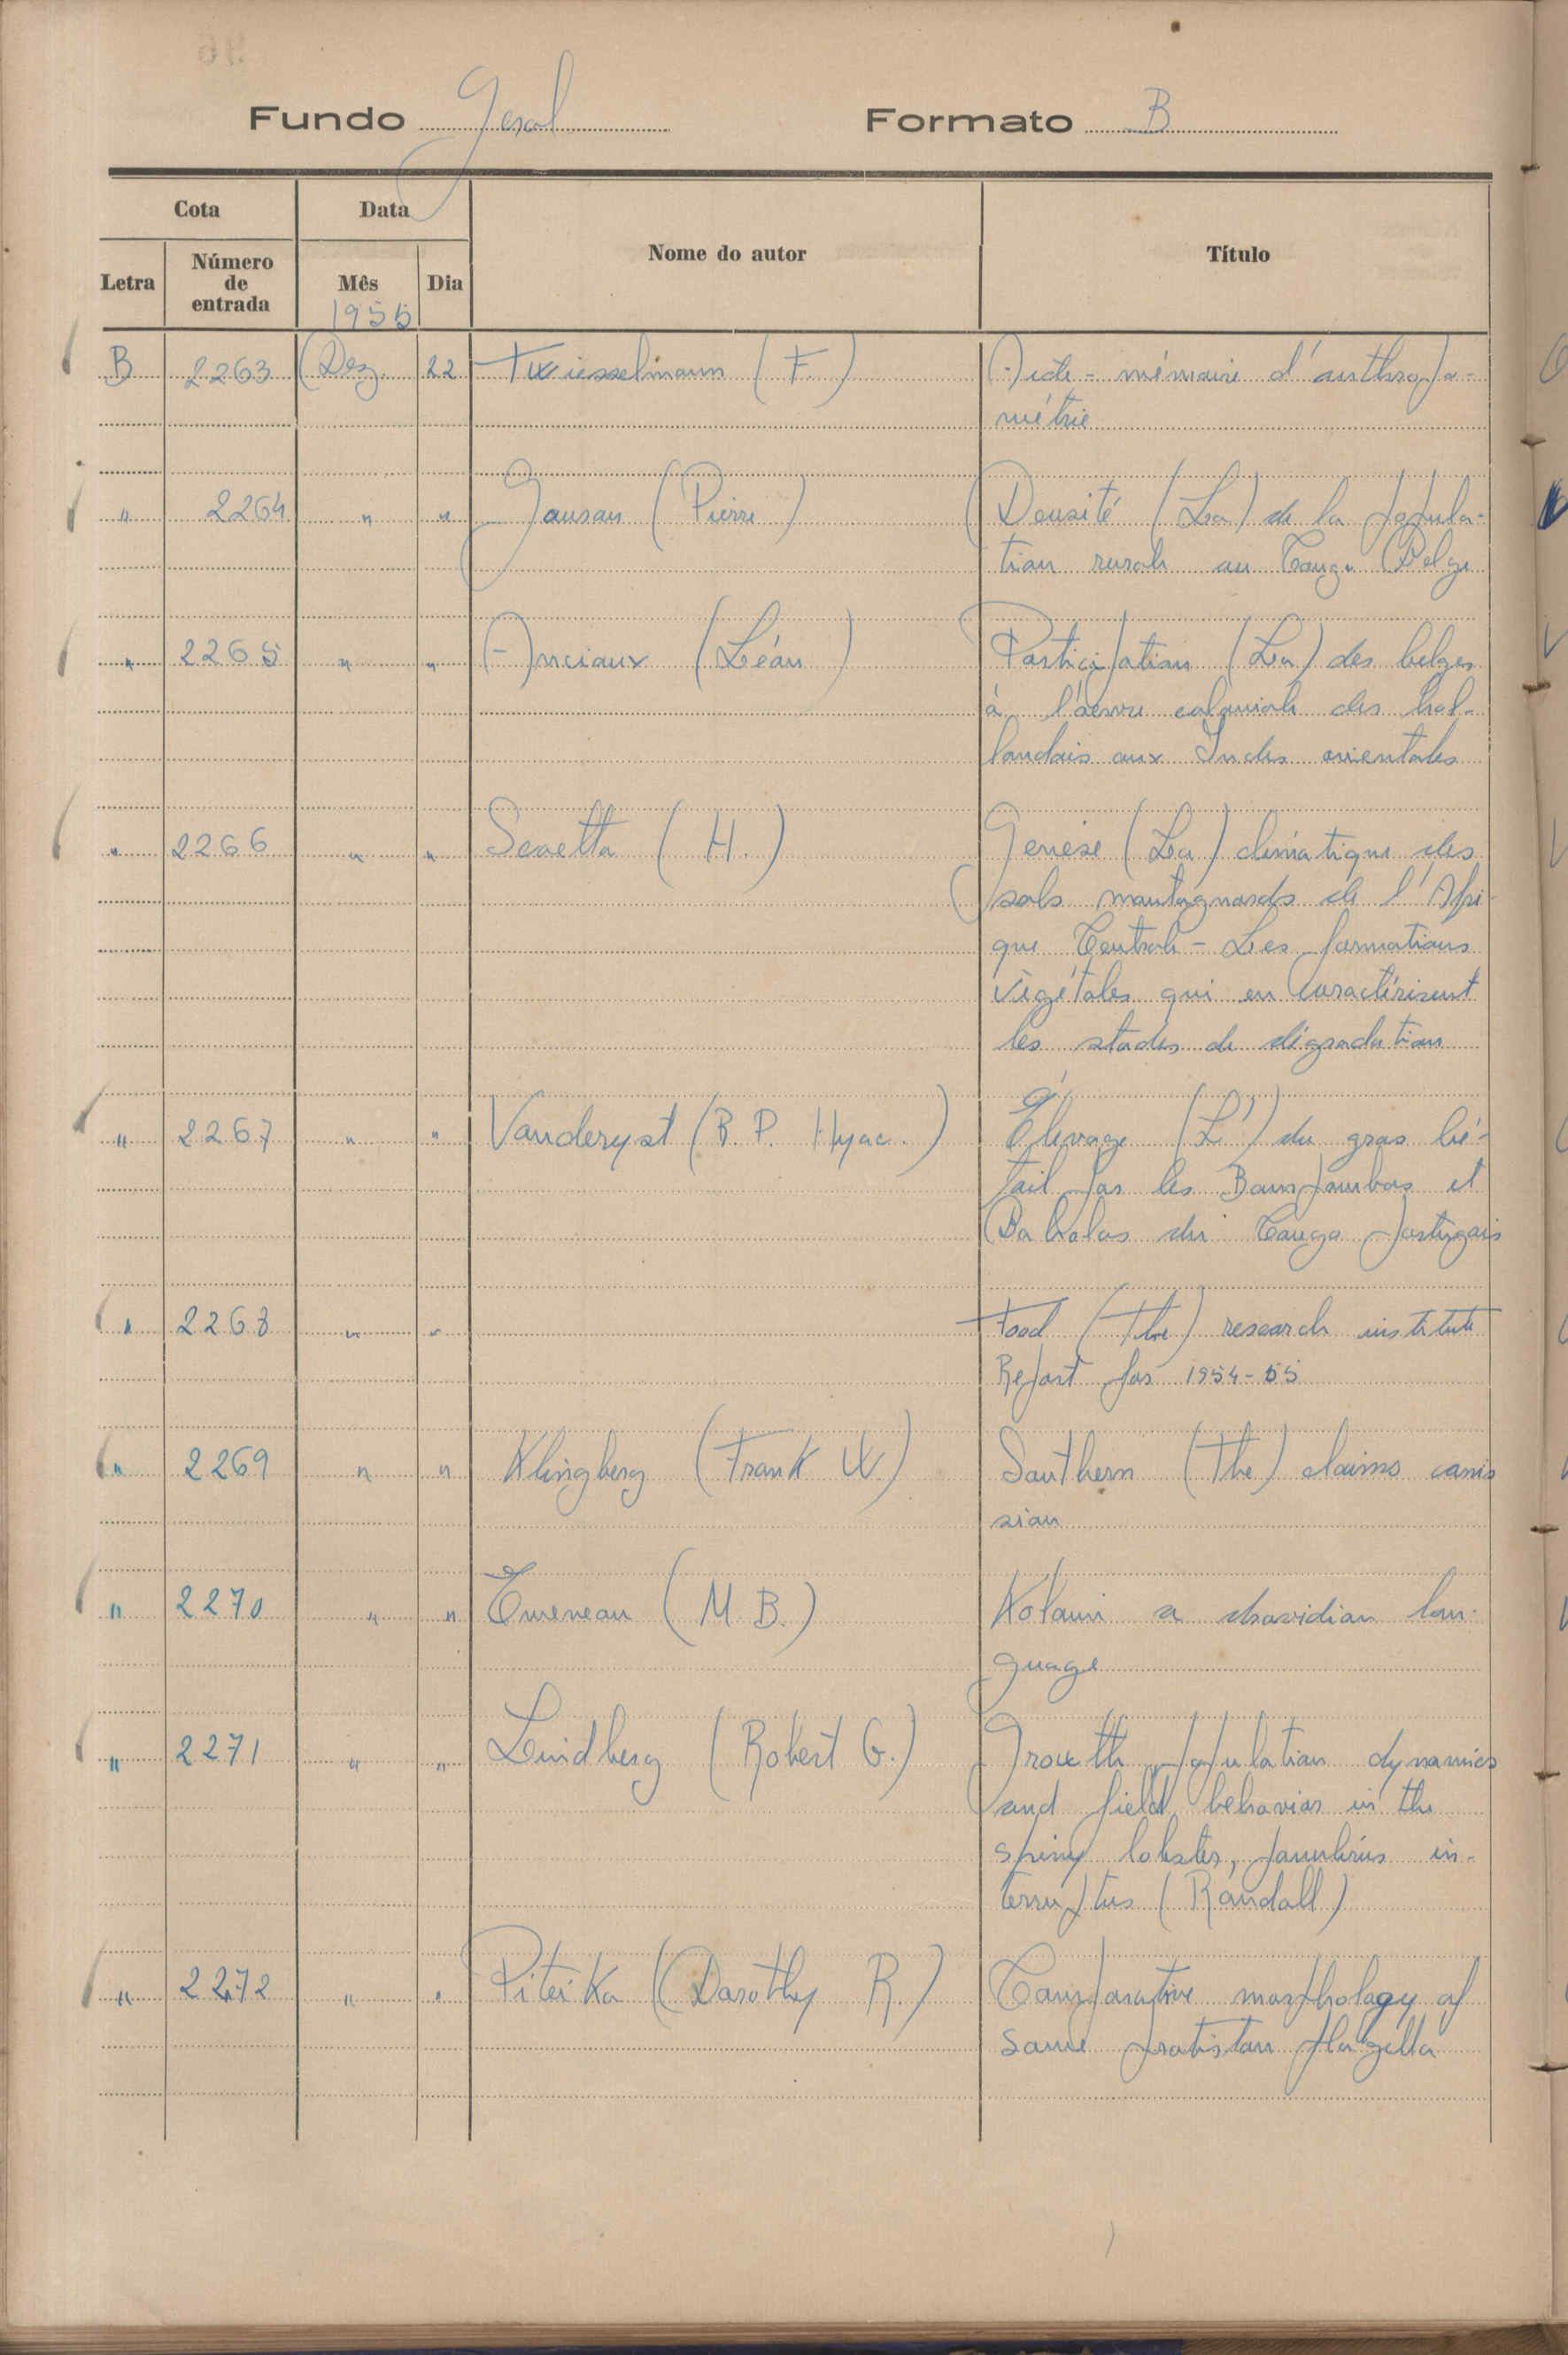 Fundo Geral Formato B
Cota Data Nome do autor Título
Letra Número de entrada Mês Dia
1955
B 2263 Dez. 22 Twiesselmann (F.) Aide-mémoire d'anthropo-
métrie
" 2264 " " (Pierre) Densité (La) de la popula-
tion rurale au Congo Belge
" 2265 " " Anciaux (Léon) Participation (La) des belges
à l'œuvre coloniale des hol-
landais aux Indes orientales
" 2266 " " Scaetta (H.) Genèse (La) climatique des
sols montagnards de l'Afri-
que Centrale - Les formations
végétales qui en caractérisent
les stades de dégradation
" 2267 " " Vanderyst (R. P. Hyac.) Élevage (L') du gros bé-
tail par les Bampombos et
Baholos du Congo portugais
" 2268 " " Food (The) research institute
Report for 1954-55
" 2269 " " Klingberg (Frank W.) Southern (The) claims comis
sion
" 2270 " " Emeneau (M. B.) Kolami a dravidian lan-
guage
" 2271 " " Lindberg (Robert G.) Growth, population dynamics
and field behavior in the
spiny lobster, panulirus in-
terruptus (Randall)
" 2272 " " Pitelka (Dorothy R.) Comparative morphology of
some protistan flagella